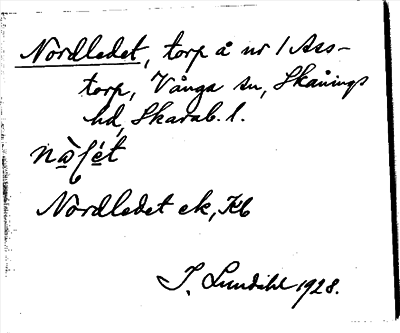 Nordledet, torp å nr 1 Ass-
torp, Vånga sn, Skånings
hd, Skarab. l.
Nordledet ek, Kb
I. Lundahl 1928.